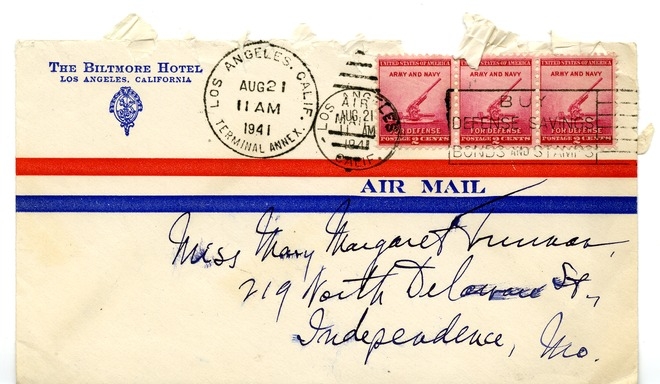 THE BILTMORE HOTEL
LOS ANGELES, CALIFORNIA
LOS ANGELES, CALIF.
AUG 21
11 AM
1941
TERMINAL ANNEX.
LOS ANGELES
AIR
MAIL
AUG 21
11 AM
1941
CALIF.
UNITED STATES OF AMERICA
ARMY AND NAVY
FOR DEFENSE
POSTAGE 2 CENTS
UNITED STATES OF AMERICA
ARMY AND NAVY
FOR DEFENSE
POSTAGE 2 CENTS
UNITED STATES OF AMERICA
ARMY AND NAVY
FOR DEFENSE
POSTAGE 2 CENTS
BUY
DEFENSE SAVINGS
BONDS AND STAMPS
AIR MAIL
Miss Mary Margaret Truman,
219 North Delaware St.,
Independence, Mo.